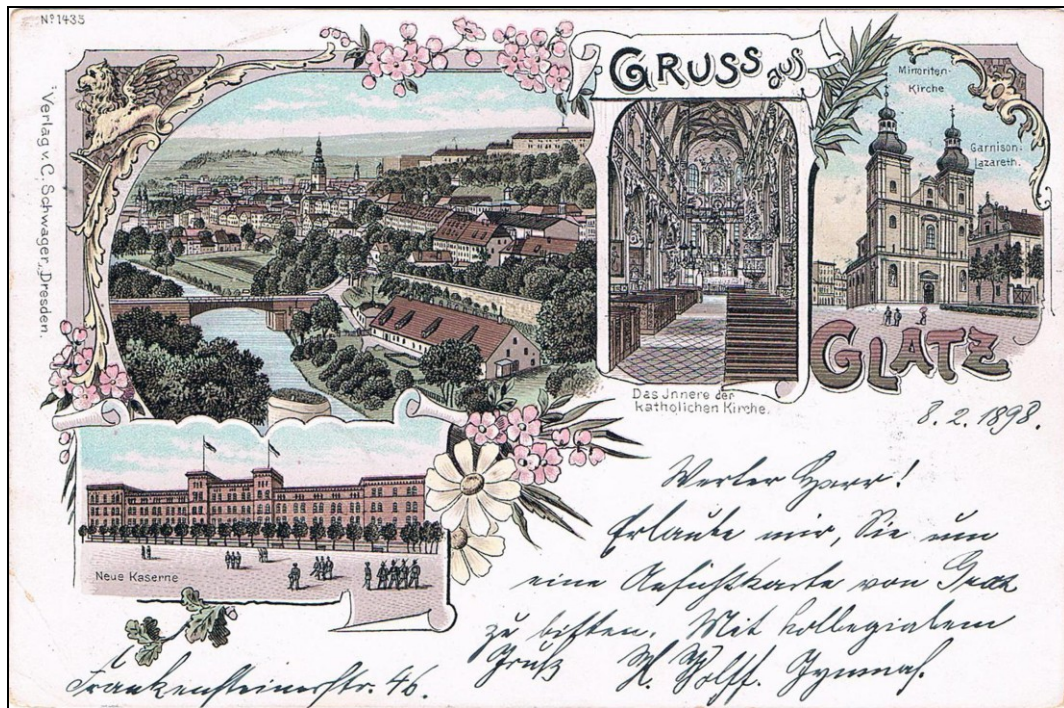 No 1433
Verlag v. C. Schwager, Dresden.
GRUSS aus
GLATZ
Minoriten-
Kirche
Garnison-
lazareth.
Das Innere der
katholichen Kirche.
Neue Kaserne
8. 2. 1898.
Werter Herr!
Erlaube mir, Sie um
eine Ansichtskarte von Graz
zu bitten. Mit kollegialem
Gruß H. Wolff. Gymnas.
Frankensteinerstr. 46.